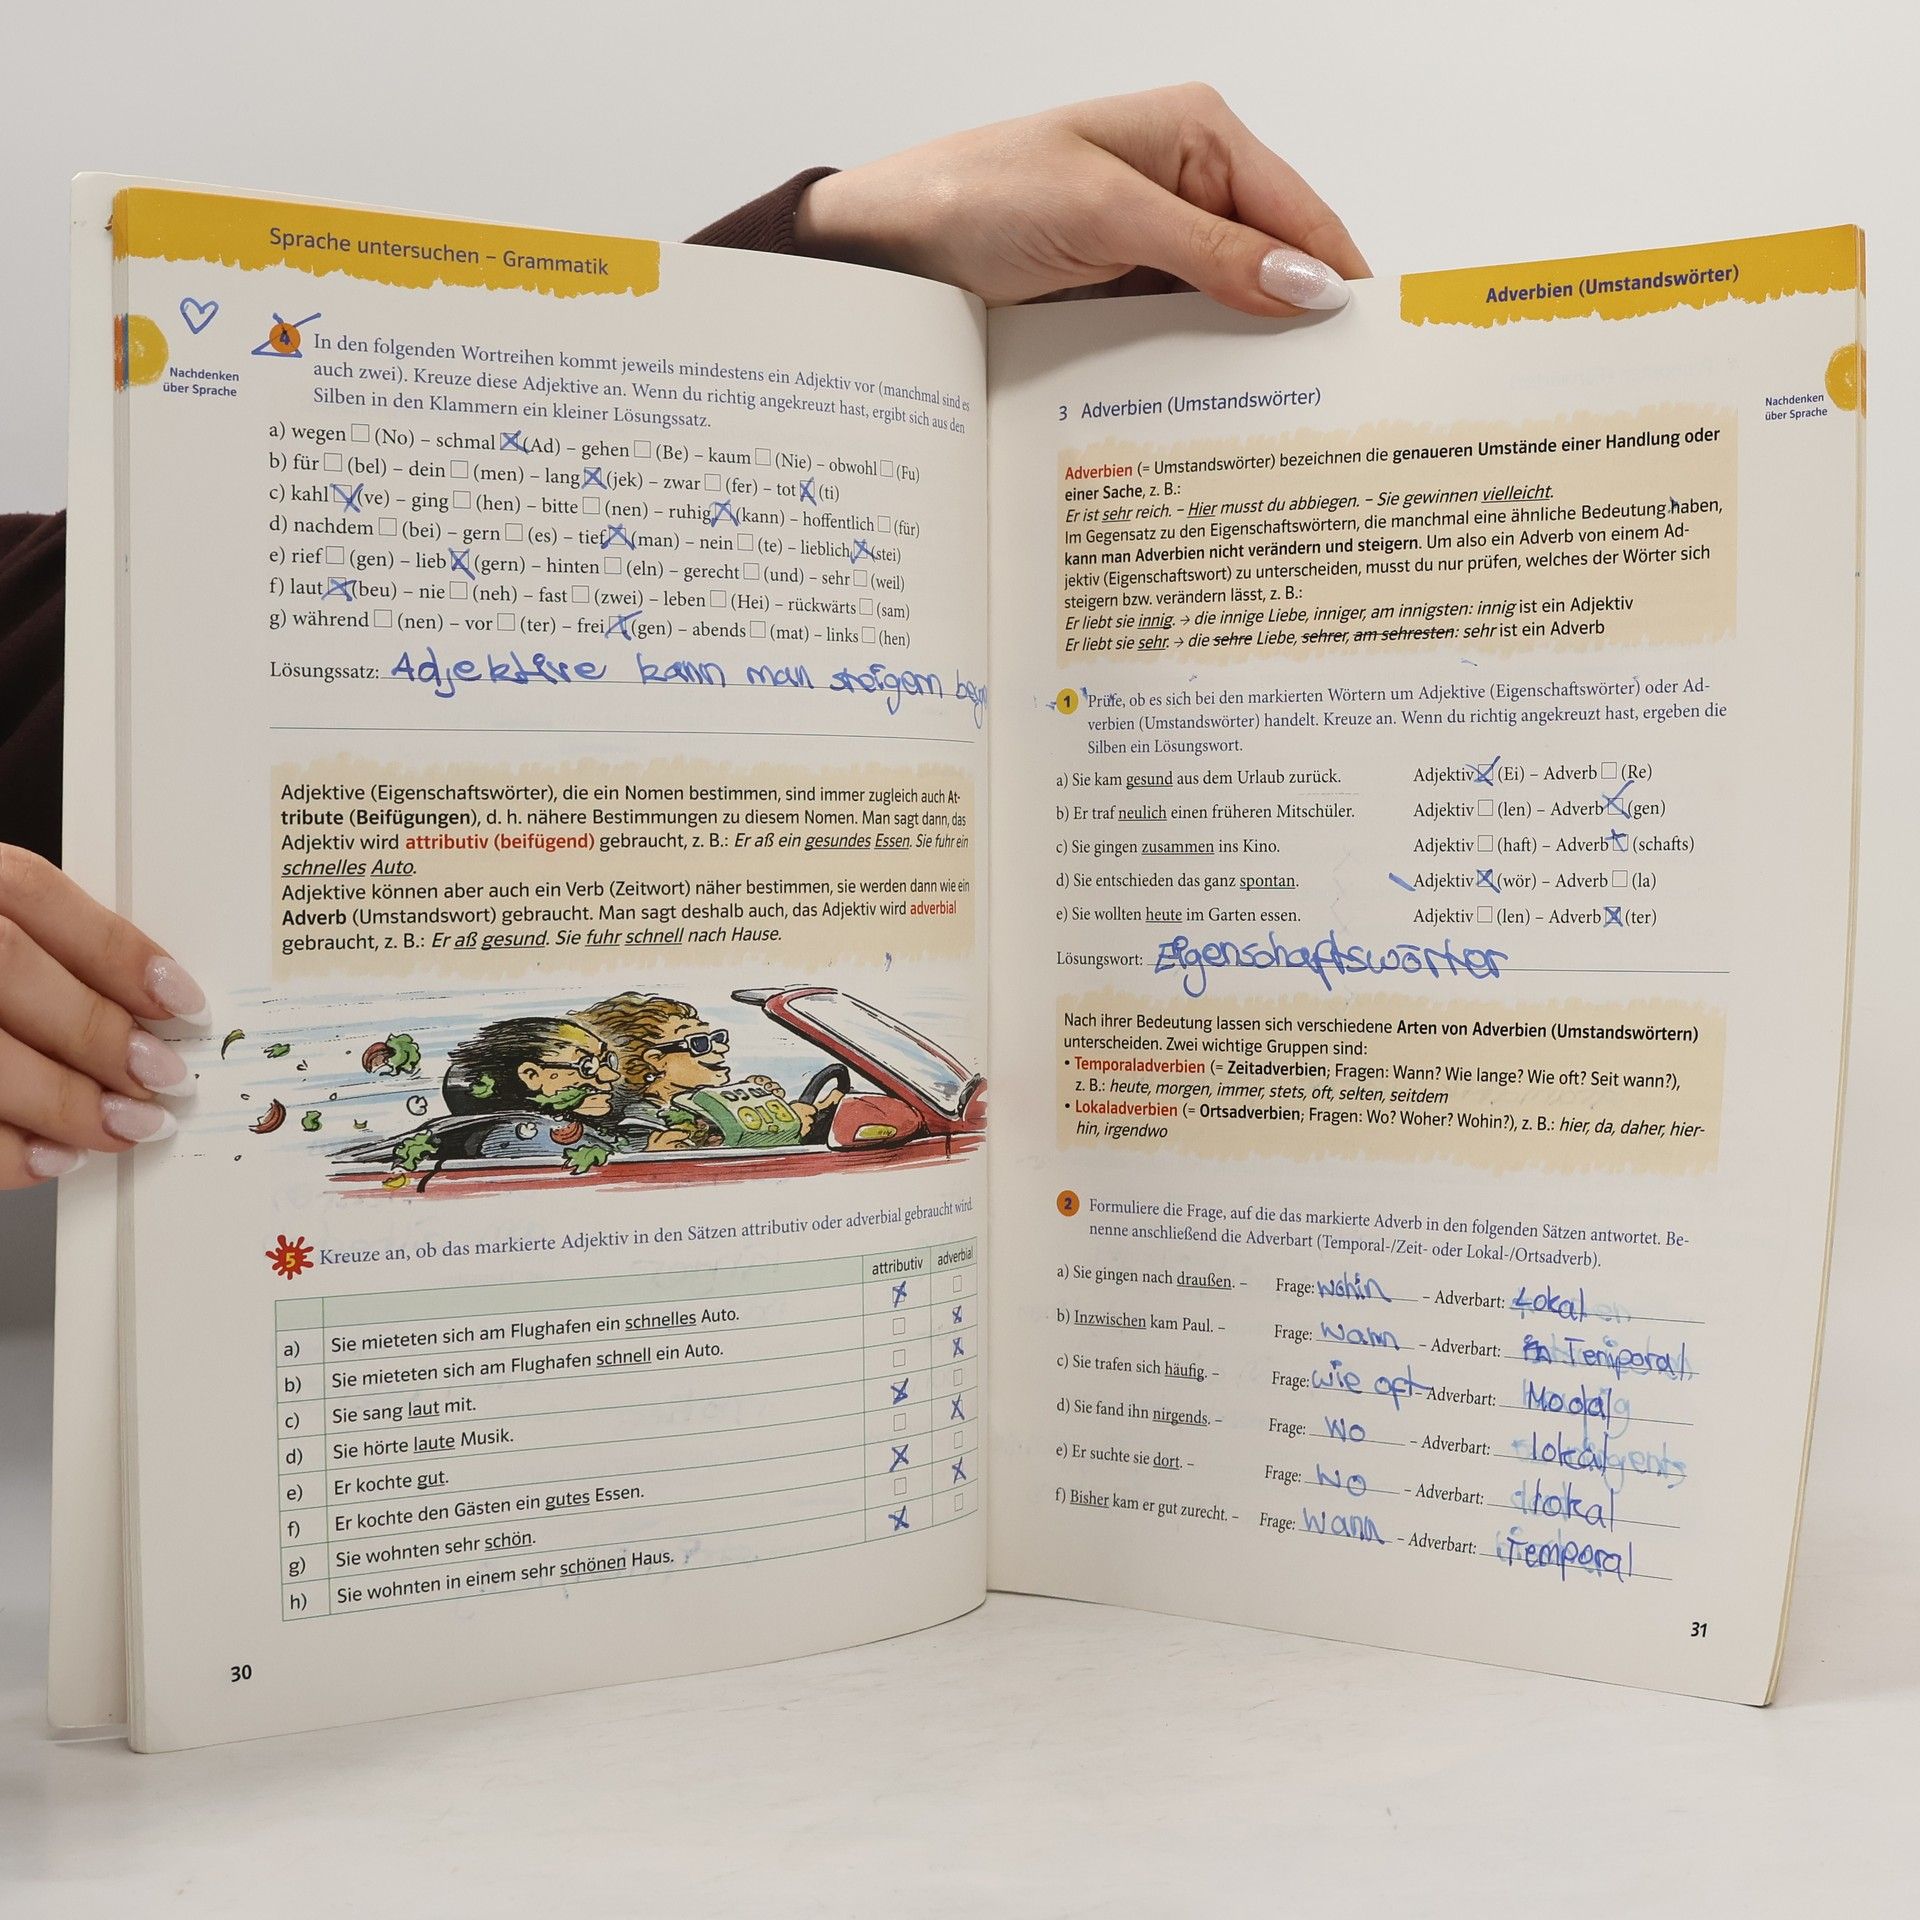 Sprache untersuchen – Grammatik
Nachdenken
über Sprache
4 In den folgenden Wortreihen kommt jeweils mindestens ein Adjektiv vor (manchmal sind es
auch zwei). Kreuze diese Adjektive an. Wenn du richtig angekreuzt hast, ergibt sich aus den
Silben in den Klammern ein kleiner Lösungssatz.
a) wegen ☐ (No) – schmal ☒ (Ad) – gehen ☐ (Be) – kaum ☐ (Nie) – obwohl ☐ (Fu)
b) für ☐ (bel) – dein ☐ (men) – lang ☒ (jek) – zwar ☐ (fer) – tot ☒ (ti)
c) kahl ☒ (ve) – ging ☐ (hen) – bitte ☐ (nen) – ruhig ☒ (kann) – hoffentlich ☐ (für)
d) nachdem ☐ (bei) – gern ☐ (es) – tief ☒ (man) – nein ☐ (te) – lieblich ☒ (stei)
e) rief ☐ (gen) – lieb ☒ (gern) – hinten ☐ (eln) – gerecht ☐ (und) – sehr ☐ (weil)
f) laut ☒ (beu) – nie ☐ (neh) – fast ☐ (zwei) – leben ☐ (Hei) – rückwärts ☐ (sam)
g) während ☐ (nen) – vor ☐ (ter) – frei ☒ (gen) – abends ☐ (mat) – links ☐ (hen)
Lösungssatz: Adjektive kann man steigern
Adjektive (Eigenschaftswörter), die ein Nomen bestimmen, sind immer zugleich auch At-
tribute (Beifügungen), d. h. nähere Bestimmungen zu diesem Nomen. Man sagt dann, das
Adjektiv wird attributiv (beifügend) gebraucht, z. B.: Er aß ein gesundes Essen. Sie fuhr ein
schnelles Auto.
Adjektive können aber auch ein Verb (Zeitwort) näher bestimmen, sie werden dann wie ein
Adverb (Umstandswort) gebraucht. Man sagt deshalb auch, das Adjektiv wird adverbial
gebraucht, z. B.: Er aß gesund. Sie fuhr schnell nach Hause.
5 Kreuze an, ob das markierte Adjektiv in den Sätzen attributiv oder adverbial gebraucht wird
attributiv adverbial
a) Sie mieteten sich am Flughafen ein schnelles Auto. ☒ ☐
b) Sie mieteten sich am Flughafen schnell ein Auto. ☐ ☒
c) Sie sang laut mit. ☐ ☒
d) Sie hörte laute Musik. ☒ ☐
e) Er kochte gut. ☐ ☒
f) Er kochte den Gästen ein gutes Essen. ☒ ☐
g) Sie wohnten sehr schön. ☐ ☒
h) Sie wohnten in einem sehr schönen Haus. ☒ ☐
30
Adverbien (Umstandswörter)
Nachdenken
über Sprache
3 Adverbien (Umstandswörter)
Adverbien (= Umstandswörter) bezeichnen die genaueren Umstände einer Handlung oder
einer Sache, z. B.:
Er ist sehr reich. – Hier musst du abbiegen. – Sie gewinnen vielleicht.
Im Gegensatz zu den Eigenschaftswörtern, die manchmal eine ähnliche Bedeutung haben,
kann man Adverbien nicht verändern und steigern. Um also ein Adverb von einem Ad-
jektiv (Eigenschaftswort) zu unterscheiden, musst du nur prüfen, welches der Wörter sich
steigern bzw. verändern lässt, z. B.:
Er liebt sie innig. → die innige Liebe, inniger, am innigsten: innig ist ein Adjektiv
Er liebt sie sehr. → die sehre Liebe, sehrer, am sehresten: sehr ist ein Adverb
1 Prüfe, ob es sich bei den markierten Wörtern um Adjektive (Eigenschaftswörter) oder Ad-
verbien (Umstandswörter) handelt. Kreuze an. Wenn du richtig angekreuzt hast, ergeben die
Silben ein Lösungswort.
a) Sie kam gesund aus dem Urlaub zurück. Adjektiv ☒ (Ei) – Adverb ☐ (Re)
b) Er traf neulich einen früheren Mitschüler. Adjektiv ☐ (len) – Adverb ☒ (gen)
c) Sie gingen zusammen ins Kino. Adjektiv ☐ (haft) – Adverb ☒ (schafts)
d) Sie entschieden das ganz spontan. Adjektiv ☒ (wör) – Adverb ☐ (la)
e) Sie wollten heute im Garten essen. Adjektiv ☐ (len) – Adverb ☒ (ter)
Lösungswort: Eigenschaftswörter
Nach ihrer Bedeutung lassen sich verschiedene Arten von Adverbien (Umstandswörtern)
unterscheiden. Zwei wichtige Gruppen sind:
• Temporaladverbien (= Zeitadverbien; Fragen: Wann? Wie lange? Wie oft? Seit wann?),
z. B.: heute, morgen, immer, stets, oft, selten, seitdem
• Lokaladverbien (= Ortsadverbien; Fragen: Wo? Woher? Wohin?), z. B.: hier, da, daher, hier-
hin, irgendwo
2 Formuliere die Frage, auf die das markierte Adverb in den folgenden Sätzen antwortet. Be-
nenne anschließend die Adverbart (Temporal-/Zeit- oder Lokal-/Ortsadverb).
a) Sie gingen nach draußen. – Frage: wohin – Adverbart: Lokal
b) Inzwischen kam Paul. – Frage: Wann – Adverbart: Temporal
c) Sie trafen sich häufig. – Frage: wie oft – Adverbart: Modal
d) Sie fand ihn nirgends. – Frage: Wo – Adverbart: lokal
e) Er suchte sie dort. – Frage: Wo – Adverbart: lokal
f) Bisher kam er gut zurecht. – Frage: Wann – Adverbart: Temporal
31